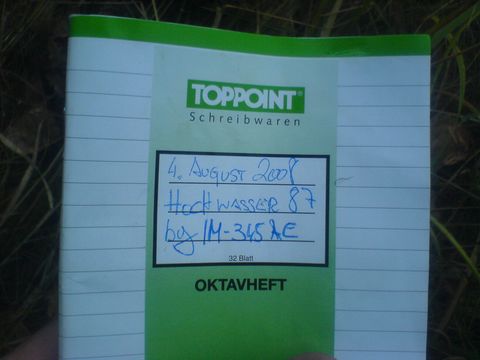 TOPPOINT®
Schreibwaren
4. AUGUST 2008
HOCHWASSER 87
by IM-345AE
32 Blatt
OKTAVHEFT